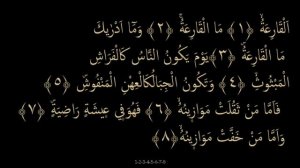 اَلْقَارِعَةُۙ ﴿١﴾ مَا الْقَارِعَةُۚ ﴿٢﴾ وَمَٓا اَدْرٰيكَ
مَا الْقَارِعَةُۜ ﴿٣﴾ يَوْمَ يَكُونُ النَّاسُ كَالْفَرَاشِ
الْمَبْثُوثِۙ ﴿٤﴾ وَتَكُونُ الْجِبَالُ كَالْعِهْنِ الْمَنْفُوشِۜ ﴿٥﴾
فَاَمَّا مَنْ ثَقُلَتْ مَوَازٖينُهُۙ ﴿٦﴾ فَهُوَ فٖي عٖيشَةٍ رَاضِيَةٍۜ ﴿٧﴾
وَاَمَّا مَنْ خَفَّتْ مَوَازٖينُهُۙ ﴿٨﴾
1-2-3-4-5-6-7-8